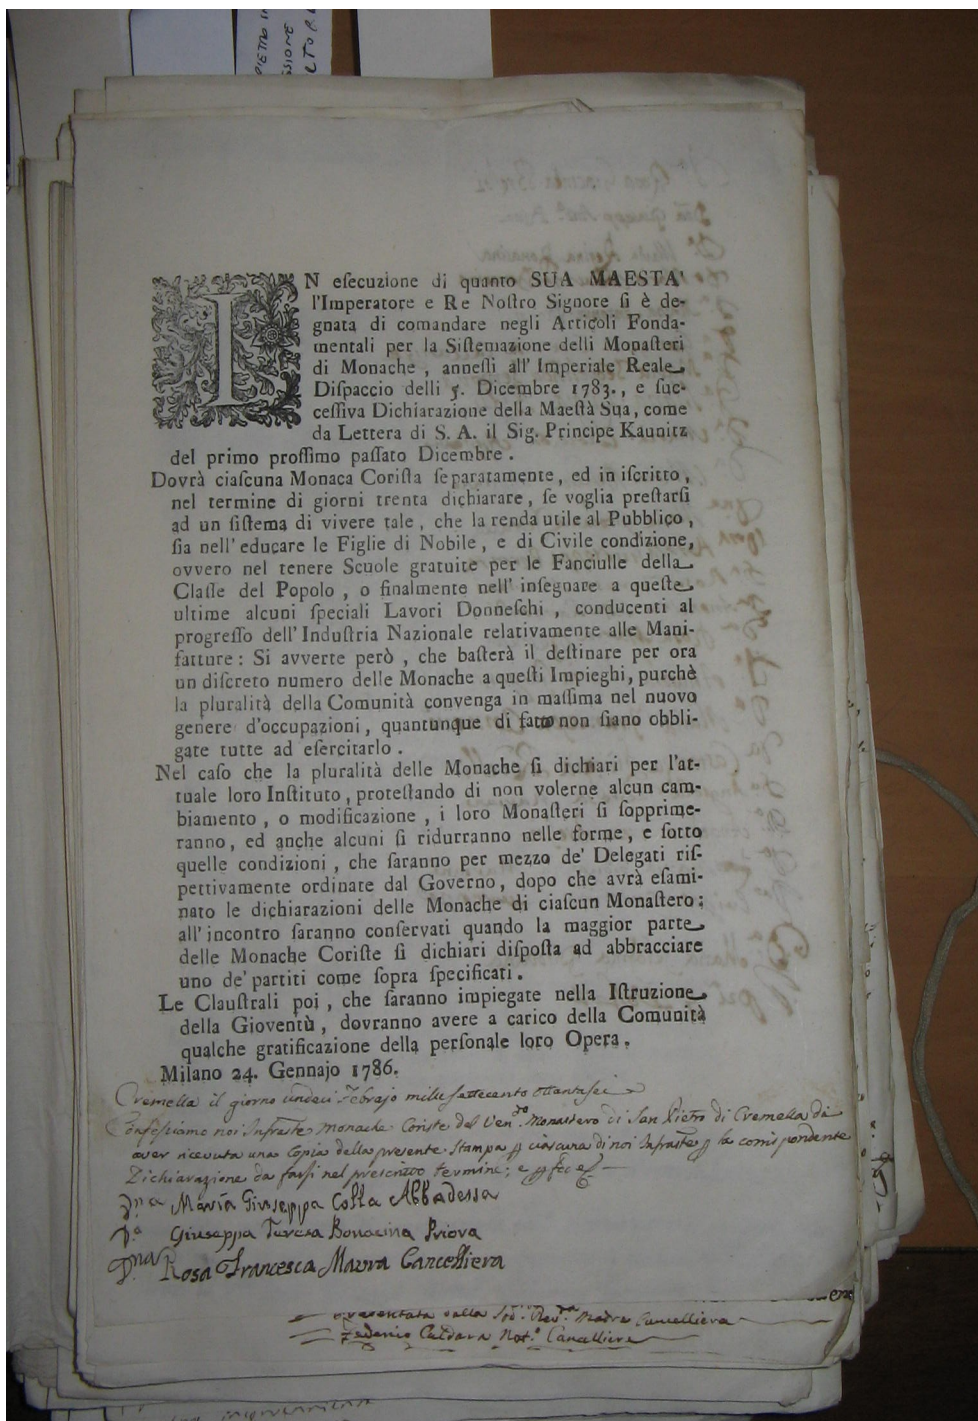 PIETRO IN
SSIONE
IN esecuzione di quanto SUA MAESTA'
l'Imperatore e Re Noſtro Signore ſi è de-
gnata di comandare negli Articoli Fonda-
mentali per la Siſtemazione delli Monaſteri
di Monache, anneſſi all' Imperiale Reale
Diſpaccio delli 5. Dicembre 1783., e ſuc-
ceſſiva Dichiarazione della Maeſtà Sua, come
da Lettera di S. A. il Sig. Principe Kaunitz
del primo proſſimo paſſato Dicembre.
Dovrà ciaſcuna Monaca Coriſta ſeparatamente, ed in iſcritto,
nel termine di giorni trenta dichiarare, ſe voglia preſtarſi
ad un ſiſtema di vivere tale, che la renda utile al Pubblico,
ſia nell' educare le Figlie di Nobile, e di Civile condizione,
ovvero nel tenere Scuole gratuite per le Fanciulle della
Claſſe del Popolo, o finalmente nell' inſegnare a queſte
ultime alcuni ſpeciali Lavori Donneſchi, conducenti al
progreſſo dell' Induſtria Nazionale relativamente alle Mani-
fatture: Si avverte però, che baſterà il deſtinare per ora
un diſcreto numero delle Monache a queſti Impieghi, purchè
la pluralità della Comunità convenga in maſſima nel nuovo
genere d'occupazioni, quantunque di fatto non ſiano obbli-
gate tutte ad eſercitarlo.
Nel caſo che la pluralità delle Monache ſi dichiari per l'at-
tuale loro Inſtituto, proteſtando di non volerne alcun cam-
biamento, o modificazione, i loro Monaſteri ſi ſopprime-
ranno, ed anche alcuni ſi ridurranno nelle forme, e ſotto
quelle condizioni, che ſaranno per mezzo de' Delegati riſ-
pettivamente ordinate dal Governo, dopo che avrà eſami-
nato le dichiarazioni delle Monache di ciaſcun Monaſtero;
all' incontro ſaranno conſervati quando la maggior parte
delle Monache Coriſte ſi dichiari diſpoſta ad abbracciare
uno de' partiti come ſopra ſpecificati.
Le Clauſtrali poi, che ſaranno impiegate nella Iſtruzione
della Gioventù, dovranno avere a carico della Comunità
qualche gratificazione della perſonale loro Opera.
Milano 24. Gennajo 1786.
Cremella il giorno undeci Febrajo mille settecento ottantasei
Confessiamo noi Infraste Monache Coriste del Ven.do Monastero di San Pietro di Cremella di
aver ricevuta una Copia della presente Stampa p ciascuna di noi Infraste p la corrispondente
Dichiarazione da farsi nel prescritto termine; e p fee
D.na Maria Giuseppa Cotta Abbadessa
D.a Giuseppa Teresa Bonacina Priora
D.na Rosa Francesca Maura Cancelliera
Presentata dalla Sod.a Rev.da Madre Cancelliera
Federico Caldara Not.o Cancelliere